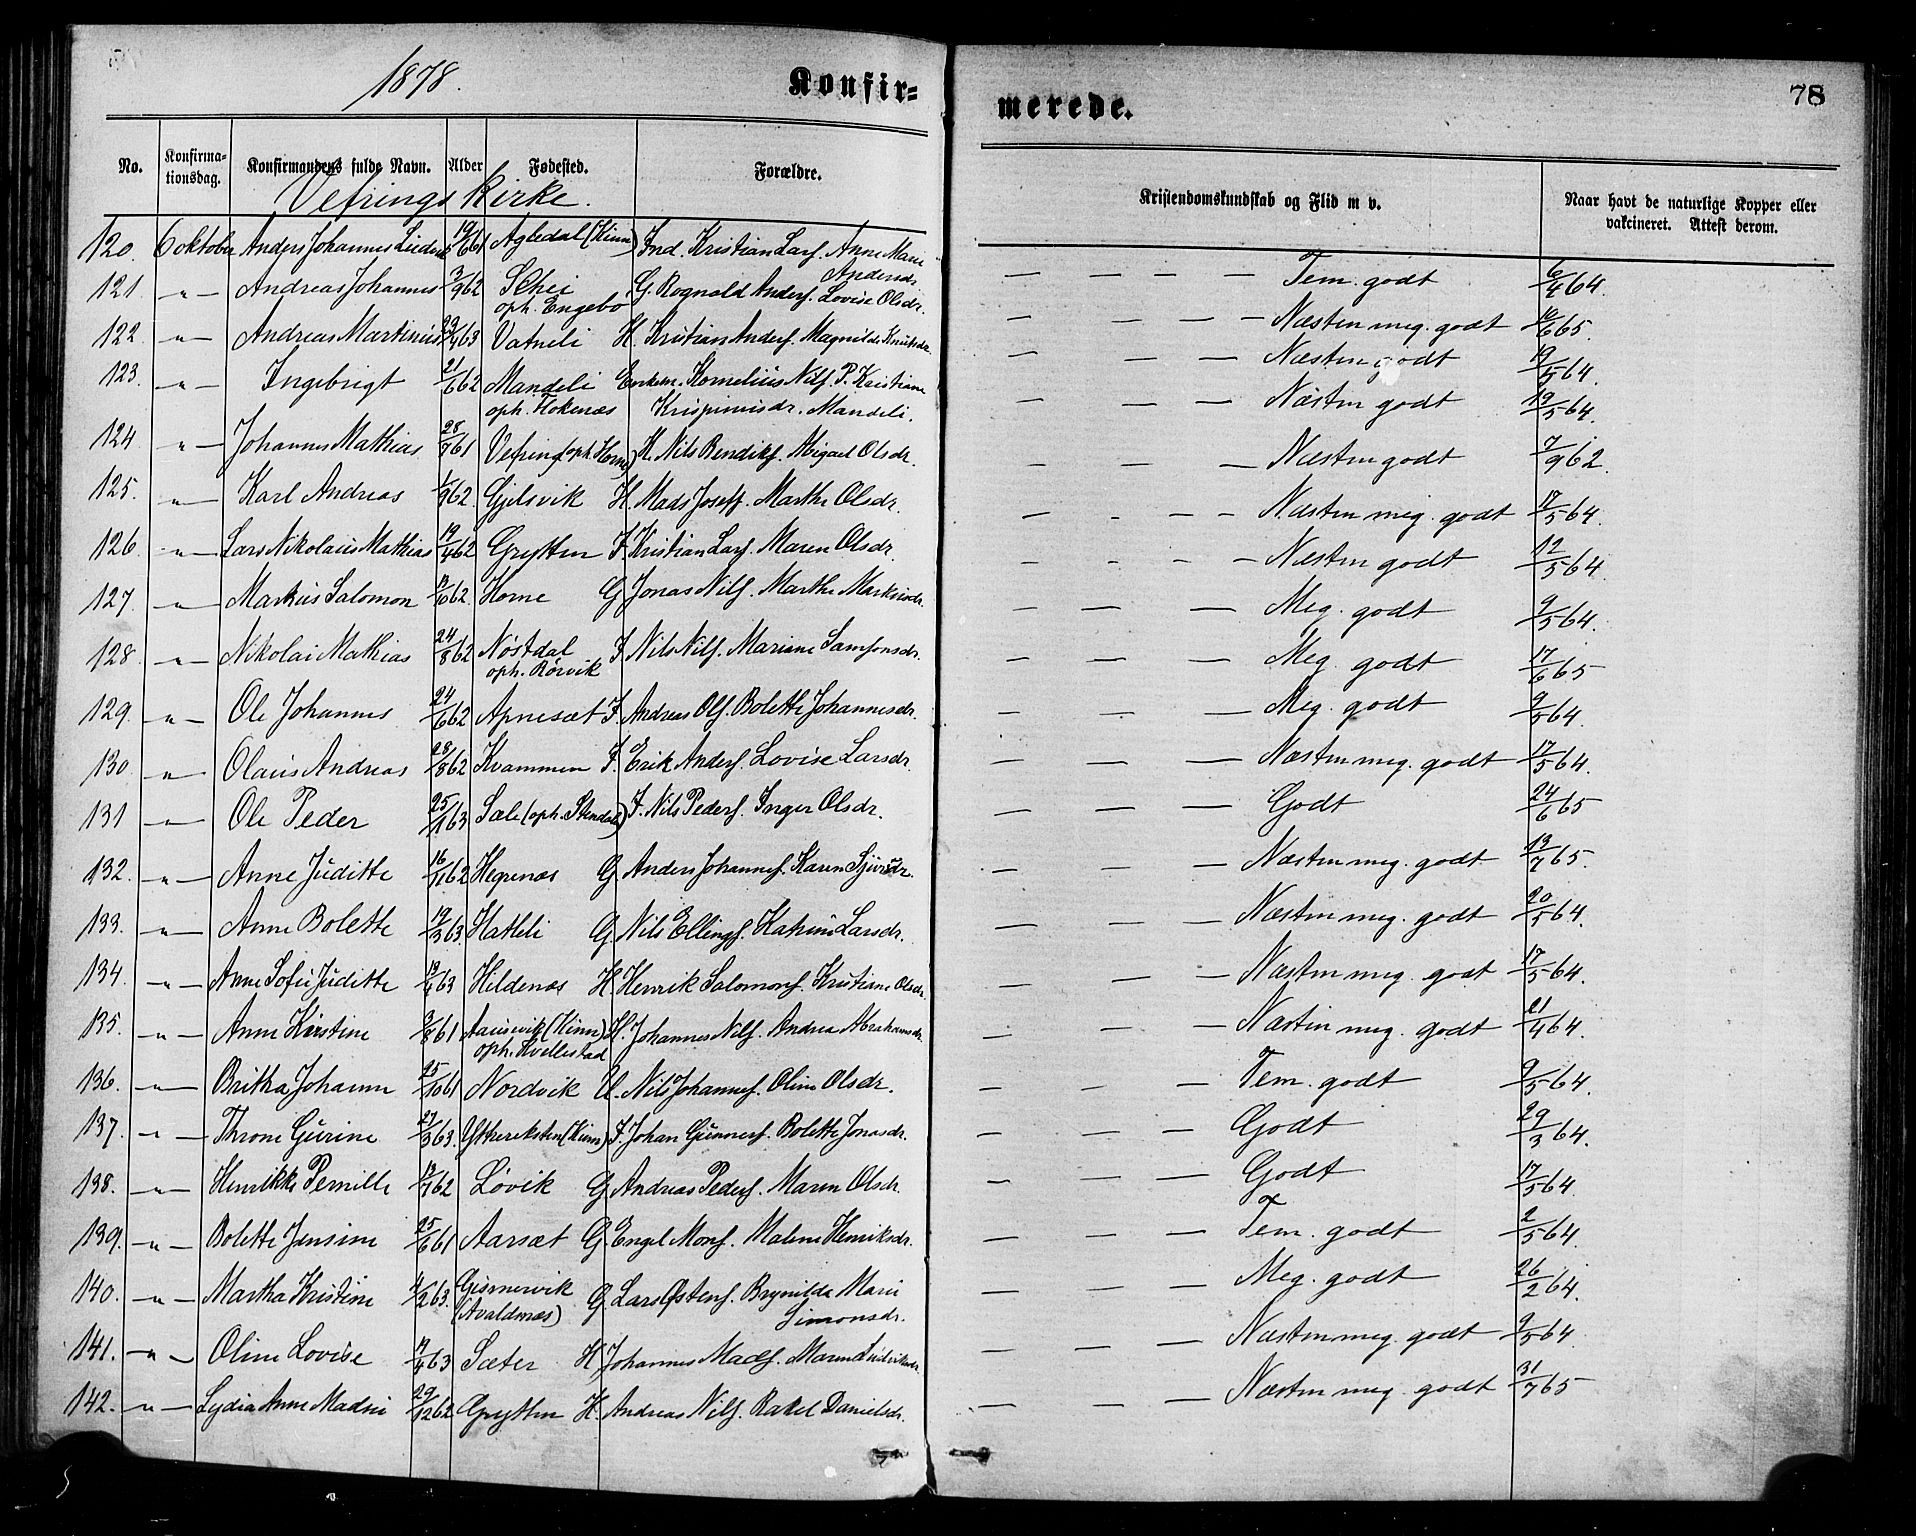 1878.
Konfir=
merede.
78
No.
Konfirma-
tionsdag.
Konfirmandens fulde Navn.
Alder
Fødested.
Forældre.
Kristendomskundskab og Flid m v.
Naar havt de naturlige Kopper eller
vakcineret. Attest derom.
Vefrings Kirke.
120. 6 oktober Anders Johannes 19/6 61 Agledal (Kinn) Ind. Kristian Lars. Anne Marie
Andersdr. — — — — Tem. godt 6/4 64.
121. -"- Andreas Johannes 3/9 62 Schei G. Rognald Anders. Lovise Olsdr.
oph. Engebø — — — — Næsten meg. godt 10/6 65
122. -"- Andreas Martinius 22/4 63 Vatneli H. Kristian Anders. Magnilde Knutsdr. — — — Næsten godt 19/5 64.
123. -"- Ingebrigt 21/6 62 Mandeli Enkem. Kornelius Nils. P. Kristiane
oph. Flokenæs Krispinusdr. Mandeli. — — — Næsten godt 19/5 64.
124 -"- Johannes Mathias 28/7 61 Vefring (oph. Horne) H. Nils Bendiks. Abigael Olsdr. — — — Næsten godt 7/9 62.
125. -"- Karl Andreas 1/9 62. Gjelsvik H. Mads Josefs. Marthe Olsdr. — - — — Næsten meg. godt 17/5 64.
126. -"- Lars Nikolaus Mathias 19/4 62 Grytten F. Kristian Lars. Maren Olsdr. - - - - Næsten godt 12/5 64.
127. -"- Markus Salomon 13/6 62. Horne G. Jonas Nils. Marthe Markusdr. — — — Meg. godt 9/5 64.
128. -"- Nikolai Mathias 24/8 62 Nøstdal F. Nils Nils. Mariane Samsonsdr.
oph. Rørvik — — — Meg. godt 17/6 65
129. -"- Ole Johannes 24/6 62 Apnesæt F. Andreas Ols. Bolette Johannesdr. — — — Meg. godt 9/5 64.
130. -"- Olaus Andreas 28/8 62 Kvammen F. Erik Anders. Lovise Larsdr. — — — Næsten meg. godt 17/5 64.
131 -"- Ole Peder 25/1 63 Sæle (oph. Stendal) F. Nils Peders. Inger Olsdr. — — — Godt 24/6 65
132. -"- Anne Juditte 16/11 62 Hegrenæs G. Anders Johannes. Karen Sjursdr. — — — Næsten meg. godt 13/7 65.
133. -"- Anne Bolette 19/3 63 Hatleli G. Nils Ellings. Katrine Larsdr. — — — Næsten meg. godt 20/5 64.
134. -"- Anne Sofie Juditte 19/4 63 Hildenæs H. Henrik Salomons. Kristiane Olsdr. — — — Næsten meg. godt 17/5 64.
135. -"- Anne Kirstine 3/8 61 (Kinn) H. Johannes Nils. Andrea Abrahamsdr.
oph. Kvellestad — — — Næsten meg. godt 21/4 64.
136. -"- Britha Johanne 25/10 61 Nordvik U. Nils Johannes. Oline Olsdr. — — — Tem. godt 9/5 64.
137. -"- Throne Gurine 27/3 63. (Kinn) F. Johan Gunners. Bolette Jonasdr. — — — Godt 29/3 64.
138. -"- Henrikke Pernille 13/7 62 Løvik G. Andreas Peders. Maren Olsdr. — — — Godt 17/5 64.
139. -"- Bolette Jensine 25/6 61 Aarsæt G. Engel Mons. Malene Henriksdr. — — — Tem. godt 2/5 64.
140. -"- Martha Kristine 4/2 63. Gismervik G. Lars Østens. Brynilda Marie
(Avaldsnæs) Simonsdr. — — — Meg. godt 26/2 64.
141. -"- Oline Lovise 17/4 63 Sæter H. Johannes Mads. Maren Ludviksdr. — — — Næsten meg. godt 9/5 64.
142. -"- Lydia Anne Madsine 29/12 62 Grytten H. Andreas Nils. Rakel Danielsdr. — — — Næsten meg. godt 31/7 65